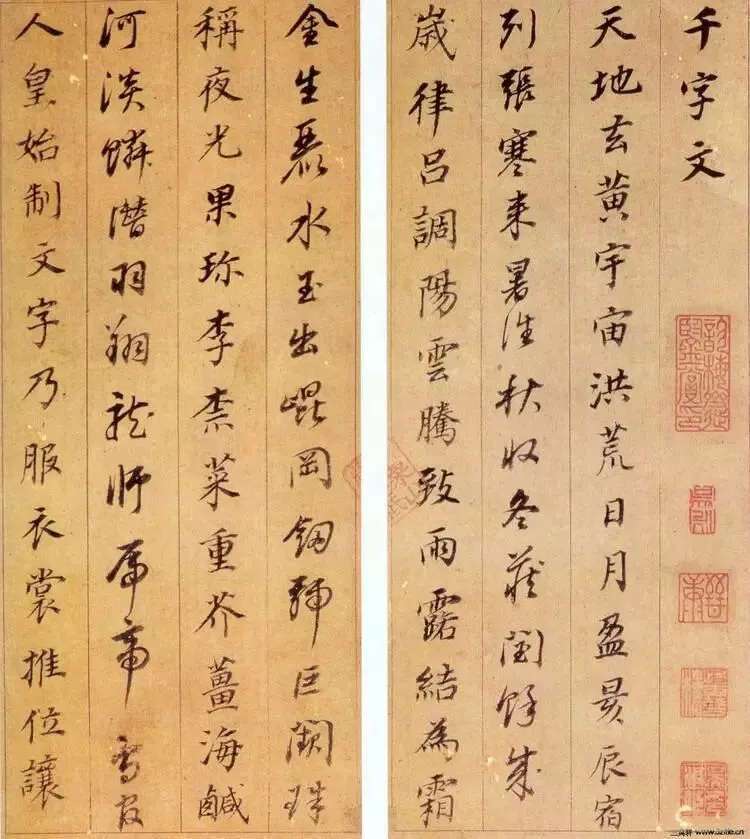 千字文
天地玄黃宇宙洪荒日月盈昃辰宿
列張寒来暑往秋收冬藏閏餘成
歲律呂調陽雲騰致雨露結為霜
金生麗水玉出崐岡劔號巨闕珠
稱夜光果珍李柰菜重芥薑海鹹
河淡鱗潛羽翔龍師帝鳥官
人皇始制文字乃服衣裳推位讓